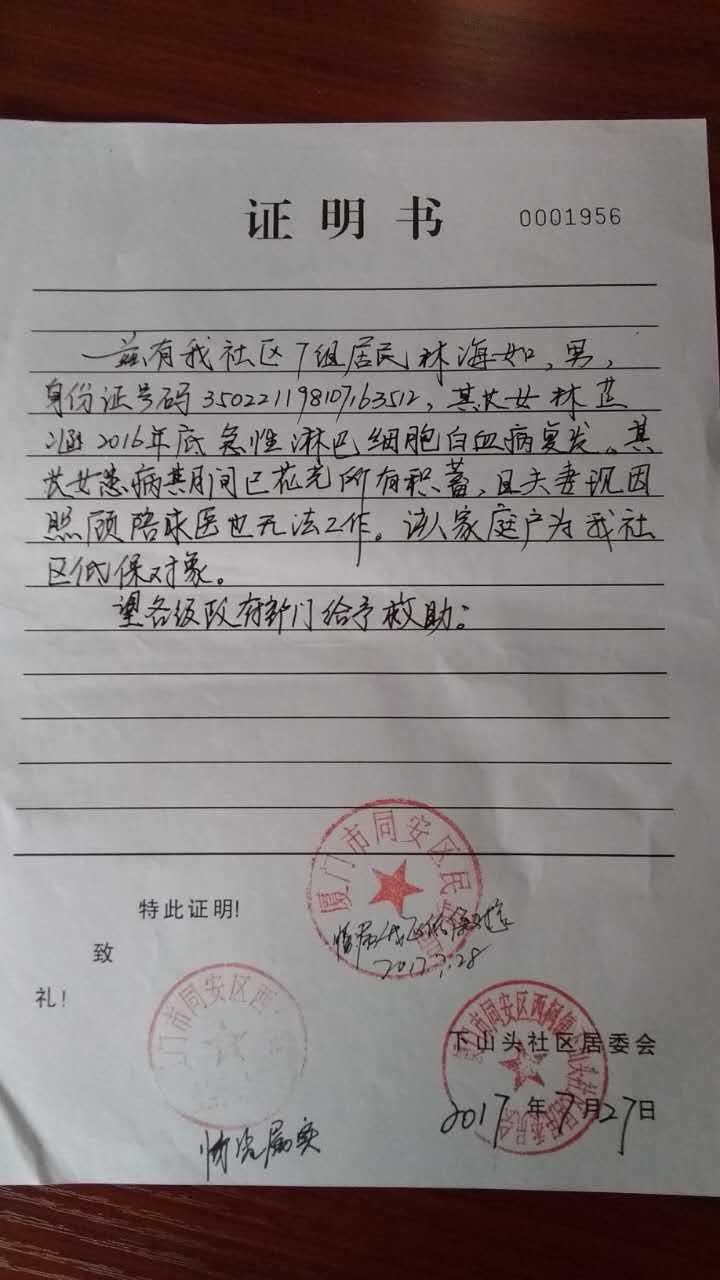 证明书 0001956
兹有我社区7组居民林海如，男，
身份证号码350221198107163512，其长女林芷
涵2016年底急性淋巴细胞白血病复发。其
长女患病其间已花光所有积蓄，且夫妻现因
照顾陪求医也无法工作。该人家庭户为我社
区低保对象。
望各级政府部门给予救助。
厦门市同安区民
特此证明!
低保对象
2017.7.28
致
礼!
门市同安区西
市同安区西柯镇
下山头社区居委会
2017年7月27日
情况属实